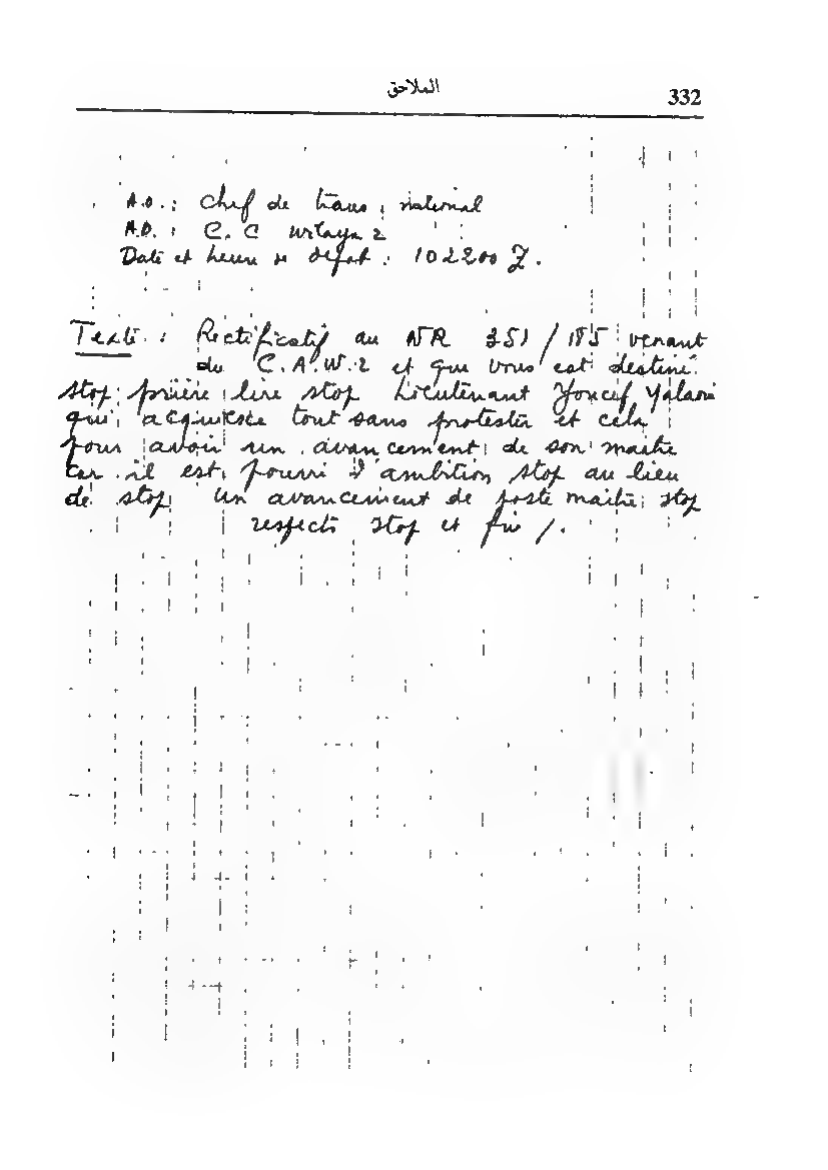 الملاحق
332
A.O. : Chef de trans, national
A.D. : C. C wilaya 2
Date et heure de dépot : 102200 Z.
Texte : Rectificatif au NR 351 / 185 venant
du C.A.W.2 et que vous est destiné
stop prière lire stop Lieutenant Youcef Yalaoui
qui acquiesce tout sans protester et cela
pour avoir un avancement de son maitre
car il est pourri d'ambition stop au lieu
de stop un avancement de poste maitre stop
respects stop et fin /.